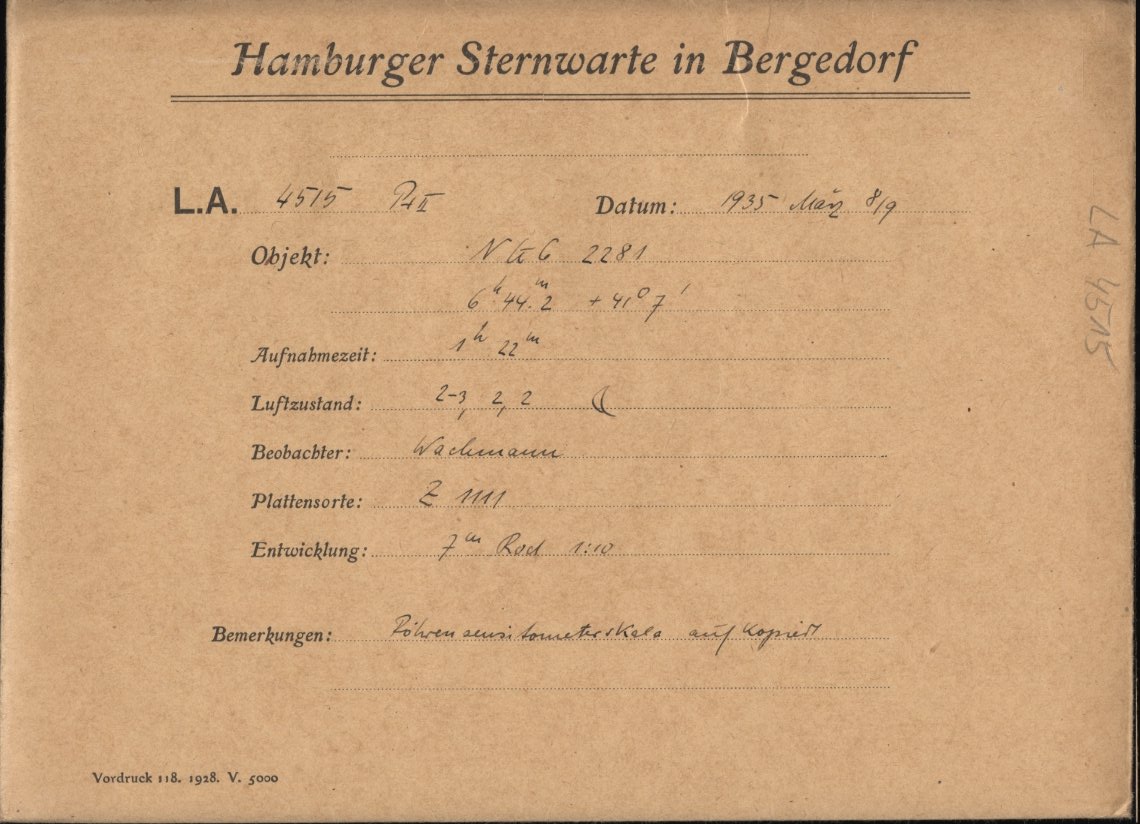 Hamburger Sternwarte in Bergedorf
L.A. 4515 Pr II
Datum: 1935 März 8/9
Objekt: NGC 2281
6h 44.m2 + 41° 7'
Aufnahmezeit: 1h 22m
Luftzustand: 2-3, 2, 2 ☾
Beobachter: Wachmann
Plattensorte: Z 1111
Entwicklung: 7m Rod 1:10
Bemerkungen: Röhrensensitometerskala aufkopiert
Vordruck 118. 1928. V. 5000
LA 4515